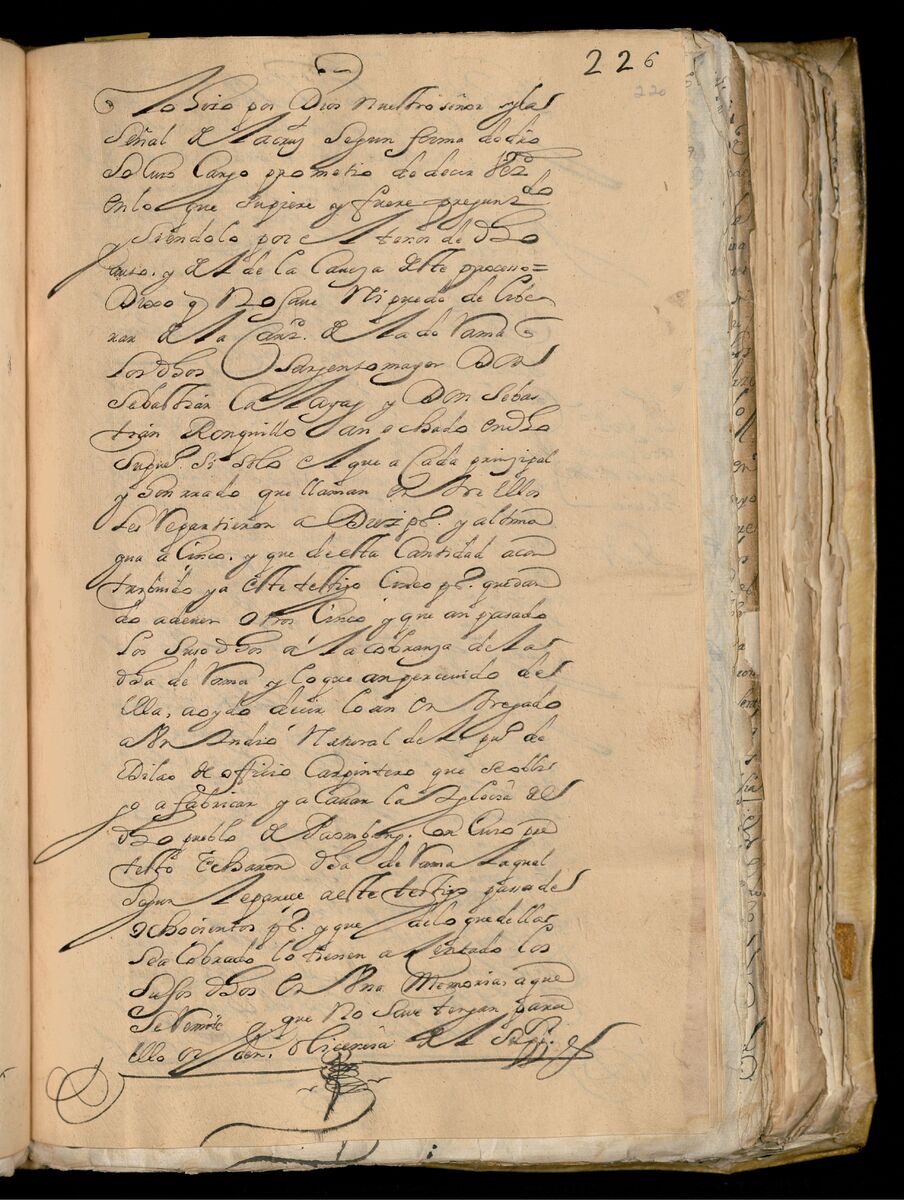 226
220
lo hizo por Dios Nuestro señor y la
señal de la cruz segun forma de dro
so cuio Cargo prometio de decir Verd
en lo que supiere y fuere pregunt.do
y siendolo por el tenor de dho
auto. y el de la Caueza deste proceso=
Dixo q No saue Ni puedo de
nar de la de la derrama
los dhos Sargento mayor Don
Sebastian Don Sebas
tian Ronquillo an echado en dho
Si solo el que a Cada prinzipal
y honrrado que llaman entre ellos
les repartieron a Diez ps. y al
gua a Cinco. y que de esta Cantidad a con
tribuido ya este testigo Cinco ps. quedan
do a deuer otros Cinco y que an pasado
los suso dhos á la cobranza de la
dha derrama y lo que an perceuido de
ella, a oydo decir lo an entregado
a Vn Indio Natural del pu.o de
Dilao de officio Carpintero que se obli
go a fabricar y acauar la Iglesia del
dho pueblo de con cuio pre
testo Echaron dha derrama la qual
segun le parece a este testigo passa de
ochocientos ps. y que de lo que della
se a Cobrado lo tienen asentado los
susos dhos en Vna Memoria, a que
se Remite que No saue tengan para
ello orden. ni licencia del